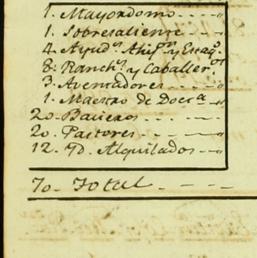 1. Mayordomo
1. Sobresaliente
4. Ayud.s Ahij.s y Estaq.os
8. Ranch.s y Caballer.os
3. Aventadores
1. Maestro de Doct.a
20. Baqueros
20. Pastores
12. Yd. Alquilados
70. Total